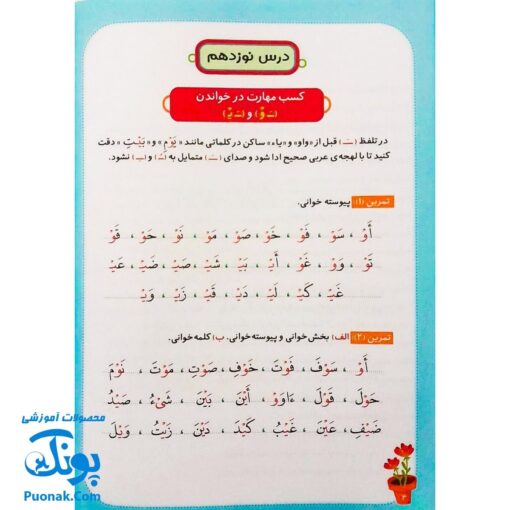 درس نوزدهم
کسب مهارت در خواندن
(ـَ وْ) و (ـَ یْ)
در تلفظ (ـَ) قبل از «واو» و «یاء» ساکن در کلماتی مانند « یَوْمِ » و « بَیْتِ » دقت
کنید تا با لهجه‌ی عربی صحیح ادا شود و صدای (ـَ) متمایل به (ـُ) و (ـِ) نشود.
تمرین (۱) پیوسته خوانی.
أَوْ ، سَوْ ، فَوْ ، خَوْ ، صَوْ ، مَوْ ، نَوْ ، حَوْ ، قَوْ
تَوْ ، وَوْ ، غَوْ ، أَیْـ ، بَیْـ ، شَیْـ ، صَیْـ ، ضَیْـ ، عَیْـ
غَیْـ ، کَیْـ ، لَیْـ ، دَیْـ ، قَیْـ ، زَیْـ ، وَیْـ
تمرین (۲) الف) بخش خوانی و پیوسته خوانی. ب) کلمه خوانی.
أَوْ ، سَوْفَ ، فَوْتَ ، خَوْفِ ، صَوْتِ ، مَوْتَ ، نَوْمَ
حَوْلَ ، قَوْلَ ، ءَاوَوْ ، أَیْنَ ، بَیْنَ ، شَیْءُ ، صَیْدُ
ضَیْفِ ، عَیْنَ ، غَیْبُ ، کَیْدَ ، دَیْنَ ، زَیْتُ ، وَیْلَ
محصولات آموزشی
پونک
Puonak.Com
۳